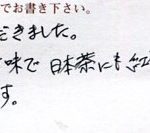 でお書き下さい。
だきました。
味で日本茶にも紅
す。